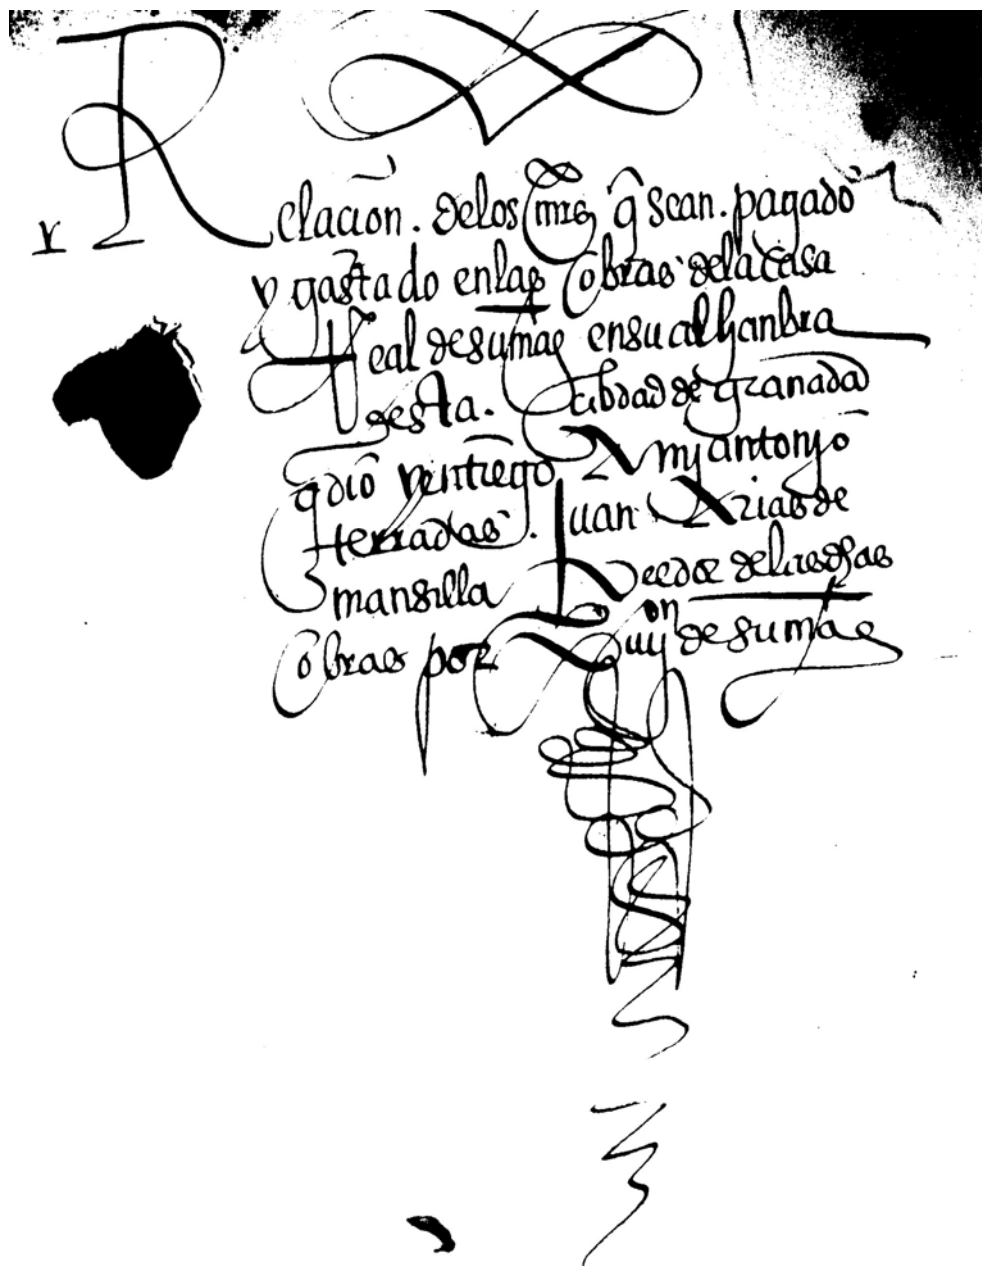 Relaçion . delos mrs q̃ sean . pagado
y gastado enlas obras dela casa
Real desumag ensu alhanbra
desta . cibdad de granada
q dio y entrego Antonyo
terradas . Juan Arias de
mansilla beedor delas dhas
obras por su mag